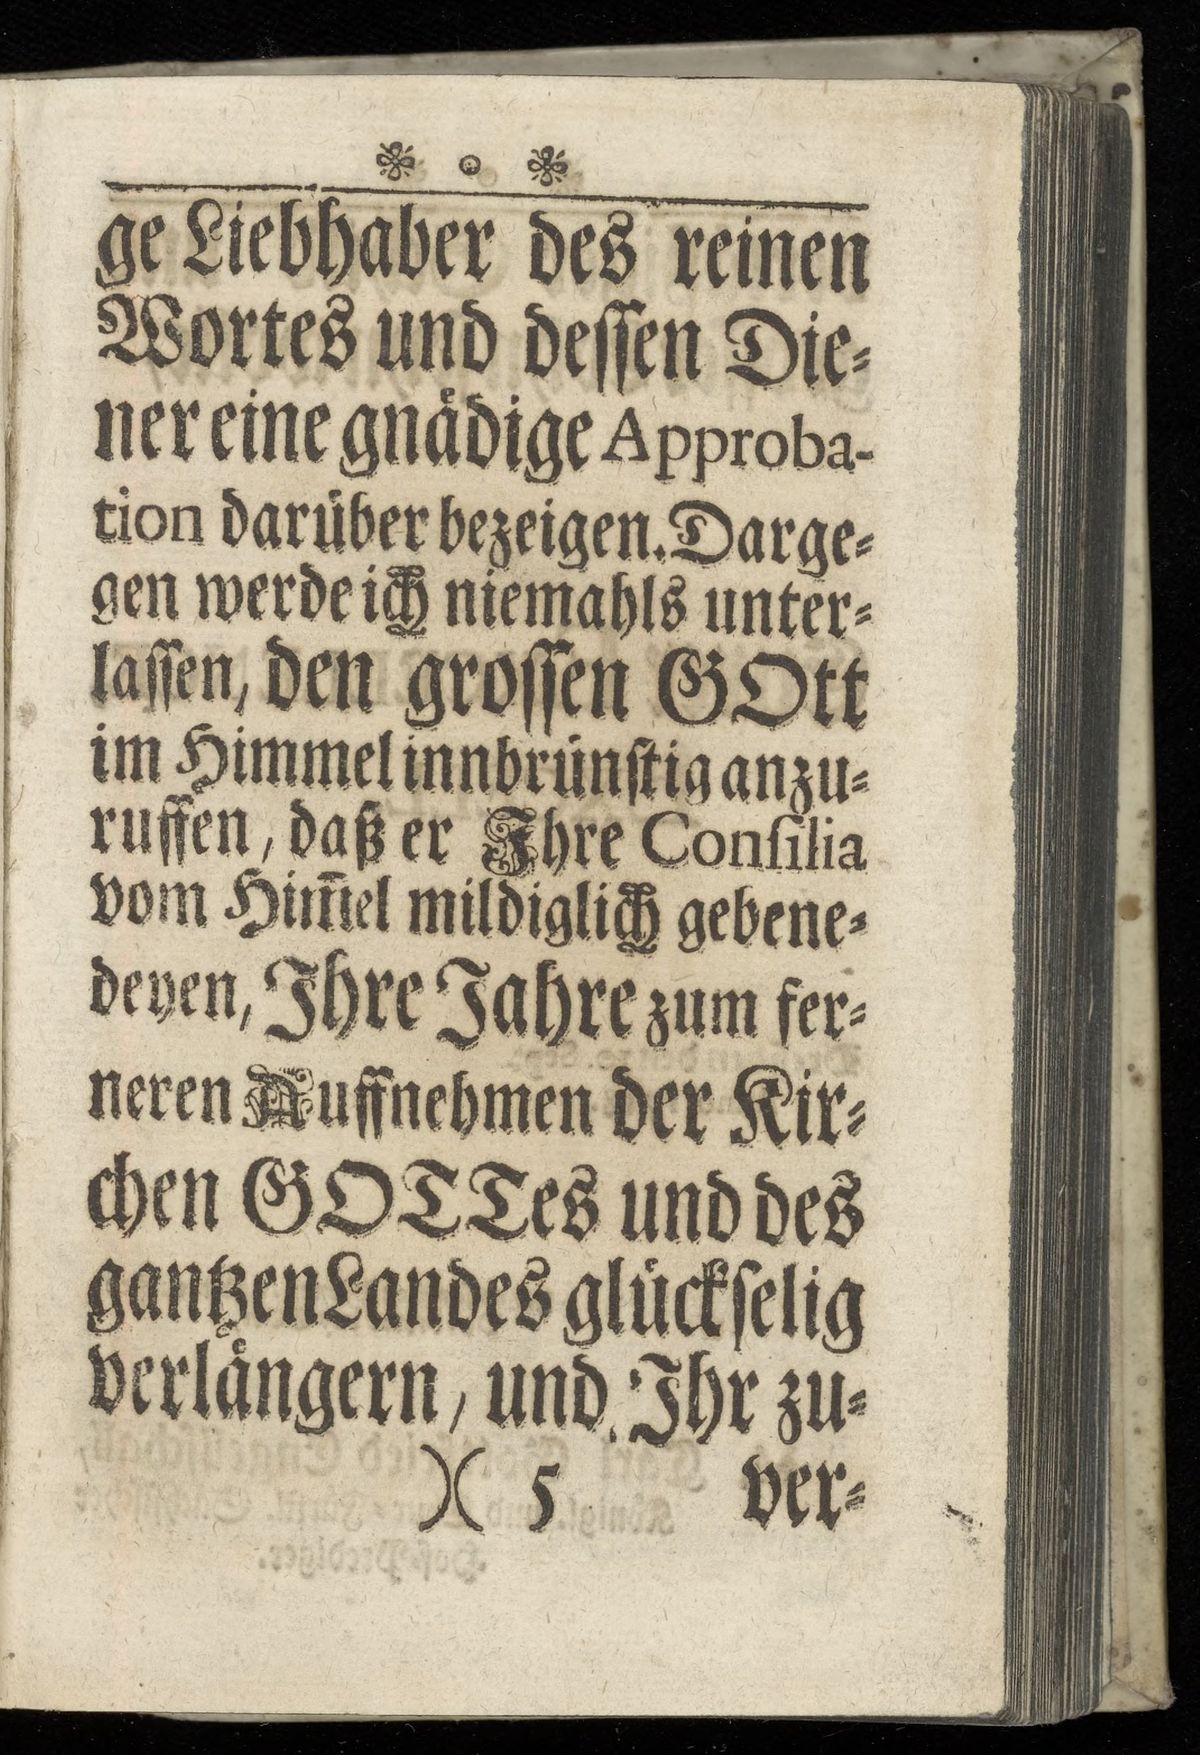 ge Liebhaber des reinen
Wortes und deſſen Die⸗
ner eine gnaͤdige Approba-
tion daruͤber bezeigen. Darge⸗
gen werde ich niemahls unter⸗
laſſen, den groſſen GOtt
im Himmel innbruͤnſtig anzu⸗
ruffen, daß er Ihre Conſilia
vom Him̃el mildiglich gebene⸗
deyen, Ihre Jahre zum fer⸗
neren Auffnehmen der Kir⸗
chen GOTTes und des
gantzen Landes gluͤckſelig
verlaͤngern, und Ihr zu⸗
)( 5 ver⸗